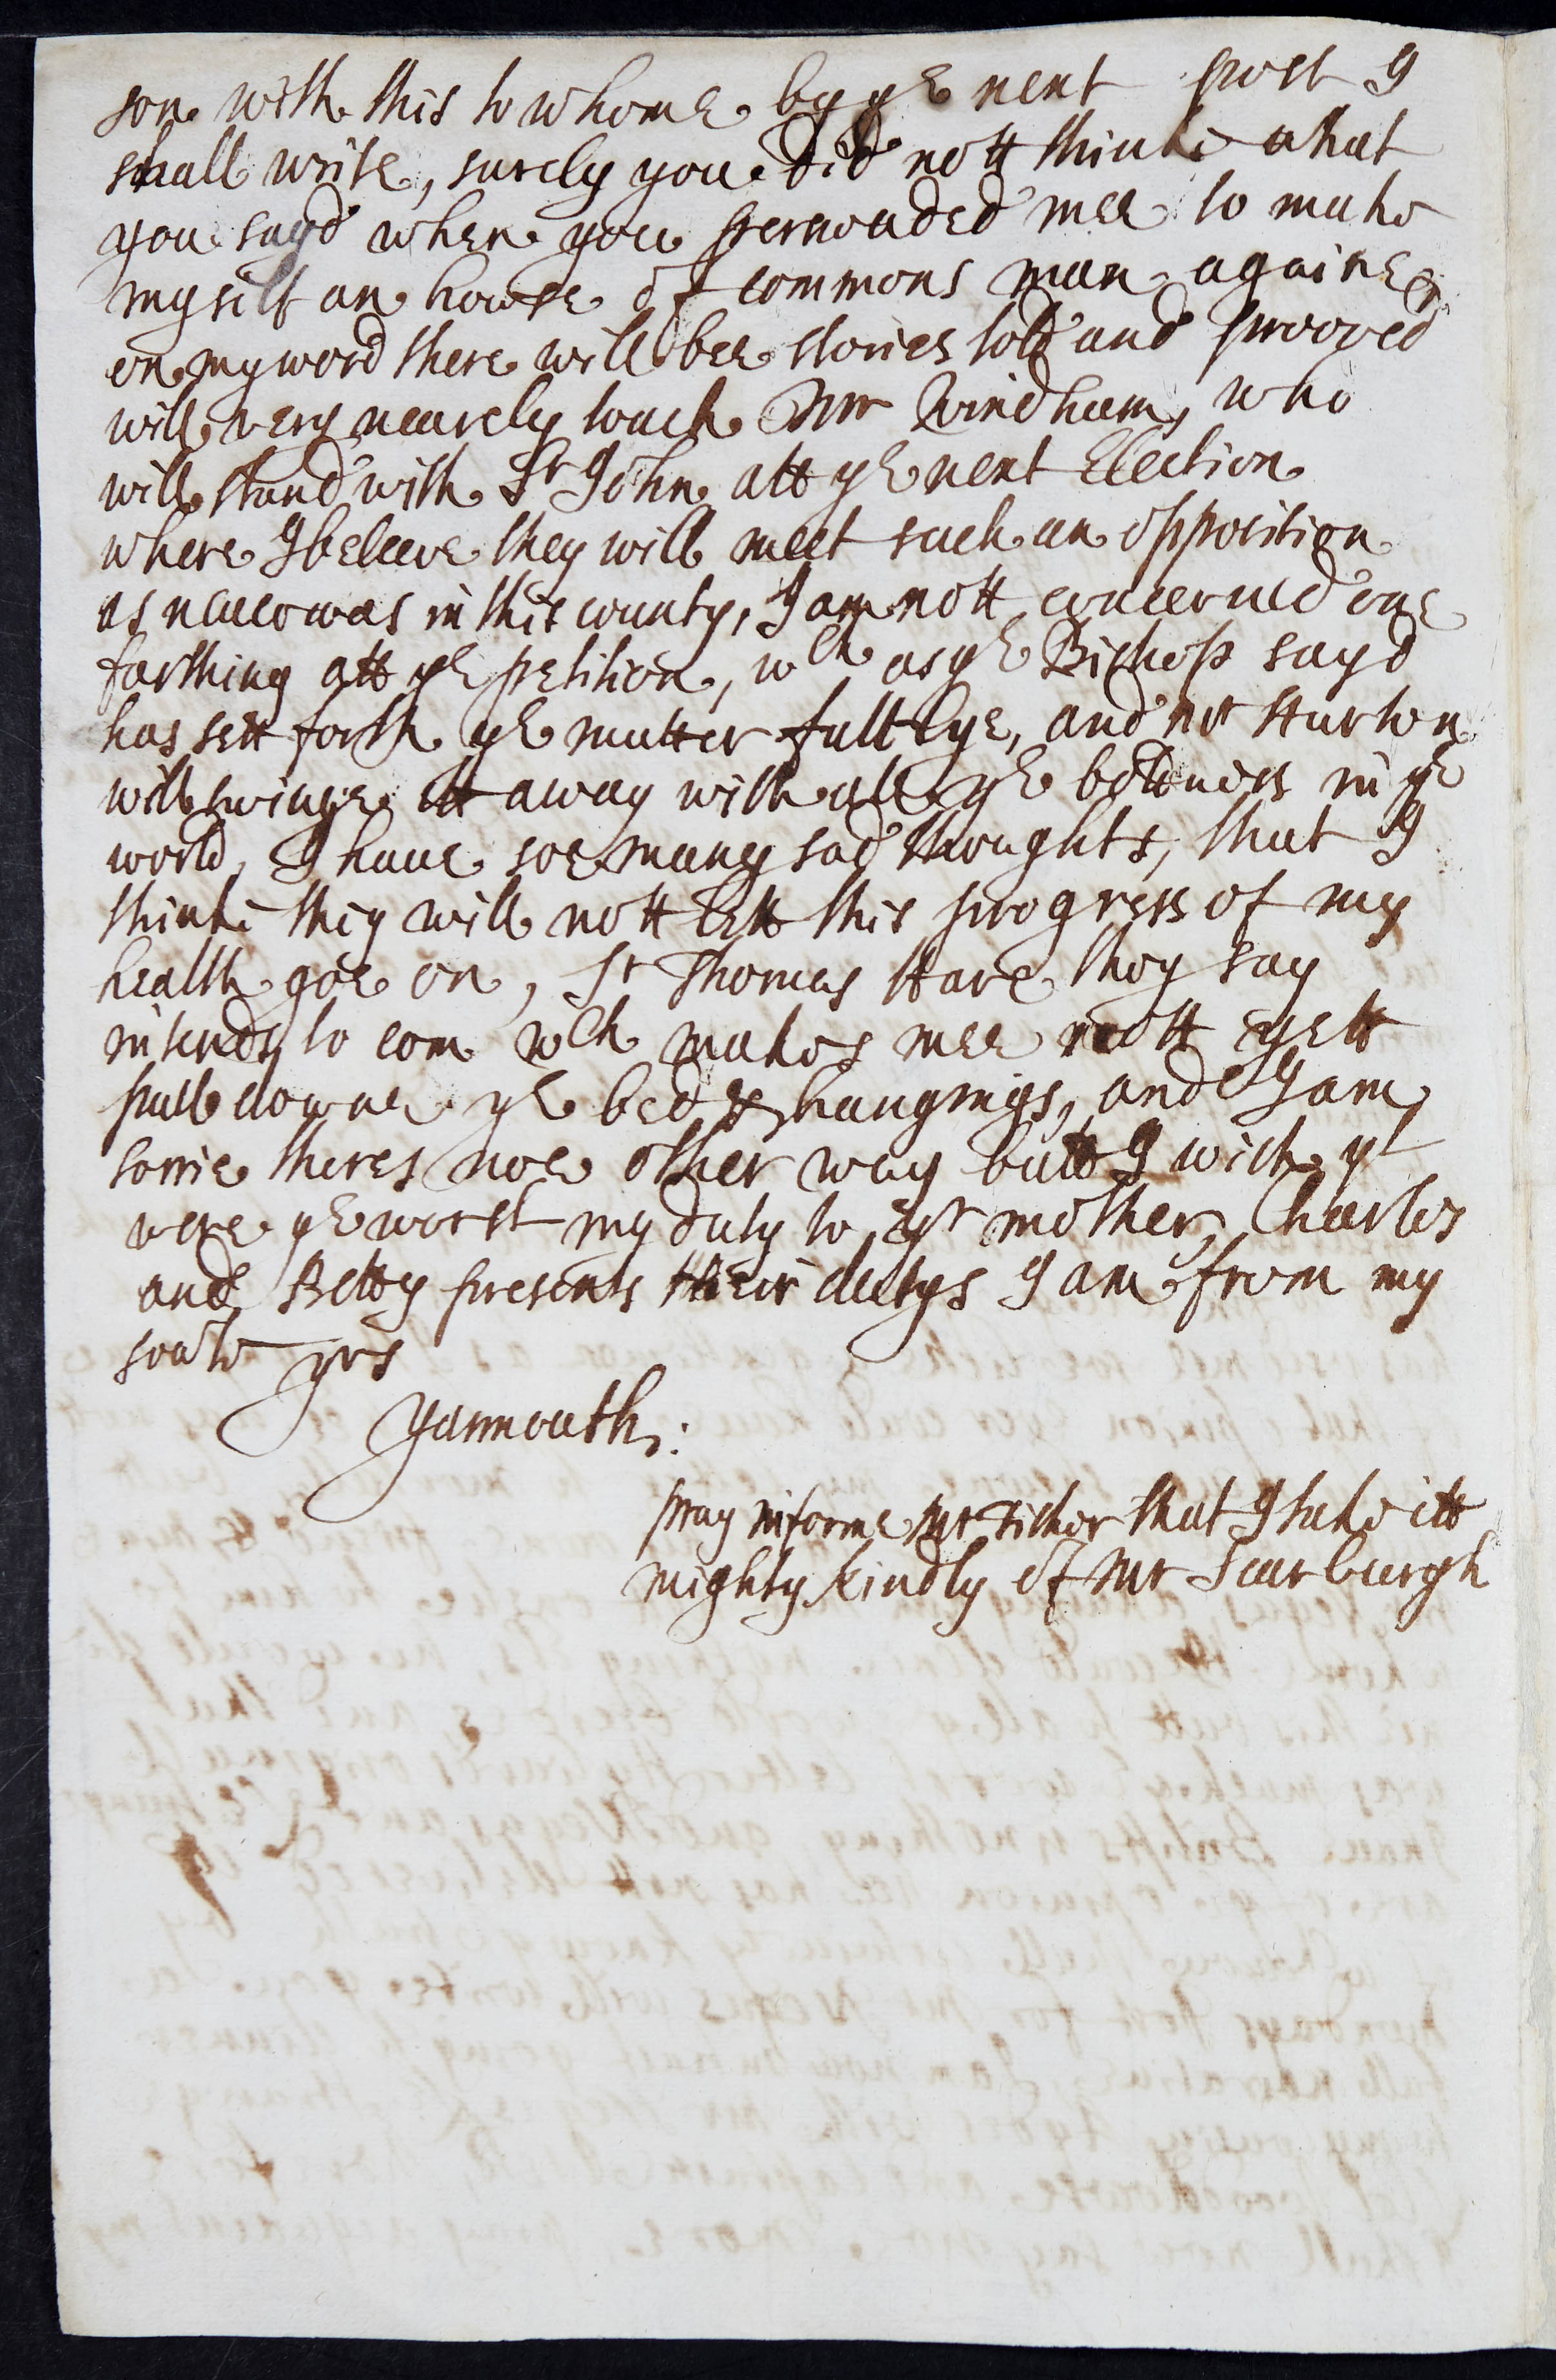 son with this to whome by ye next post I
shall write, surely you did nott thinke what
you sayd when you perswaded mee to make
myself an howse of commons man againe,
on my word there will bee stories told and prooved
will very nearely touch Mr Windham, who
will stand with Sr John att ye next Election
where I beleeve they will meet such an opposition
as never was in this county, I am nott concerned one
farthing att ye petition, wch as ye Bishop sayd
has sett forth ye matter fullye, and
will swinge itt away with all ye in ye
world, I have soe many sad thoughts, that I
thinke they will nott lett this progress of my
health goe on, Sr Thomas Hare they say
intends to com wch makes mee nott yett
pull downe ye bed & hangings, and I am
sorrie theres noe other way butt I wish yt
were ye worst my duty to yr mother, Charles
and Betty presents their dutys I am from my
soule yrs
Yarmouth:
pray informe Mr that I take itt
mighty kindly of Mr Scarburgh